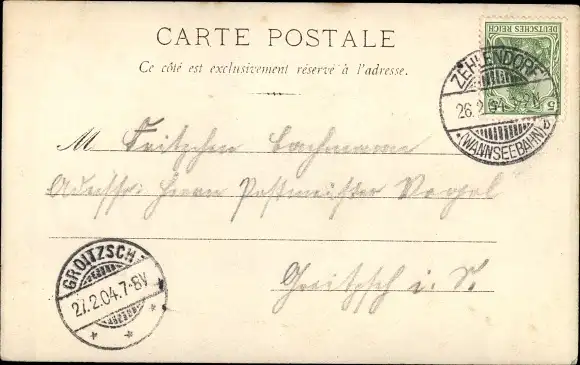 CARTE POSTALE
Ce côté est exclusivement réservé à l'adresse.
DEUTSCHES REICH
5
ZEHLENDORF
26.2.04
*(WANNSEEBAHN) b
M. Fritzchen Bachmann
Adresse: Herrn Postmeister Vogel
Groitzsch i. S.
GROITZSCH
27.2.04.7-8V
* * *